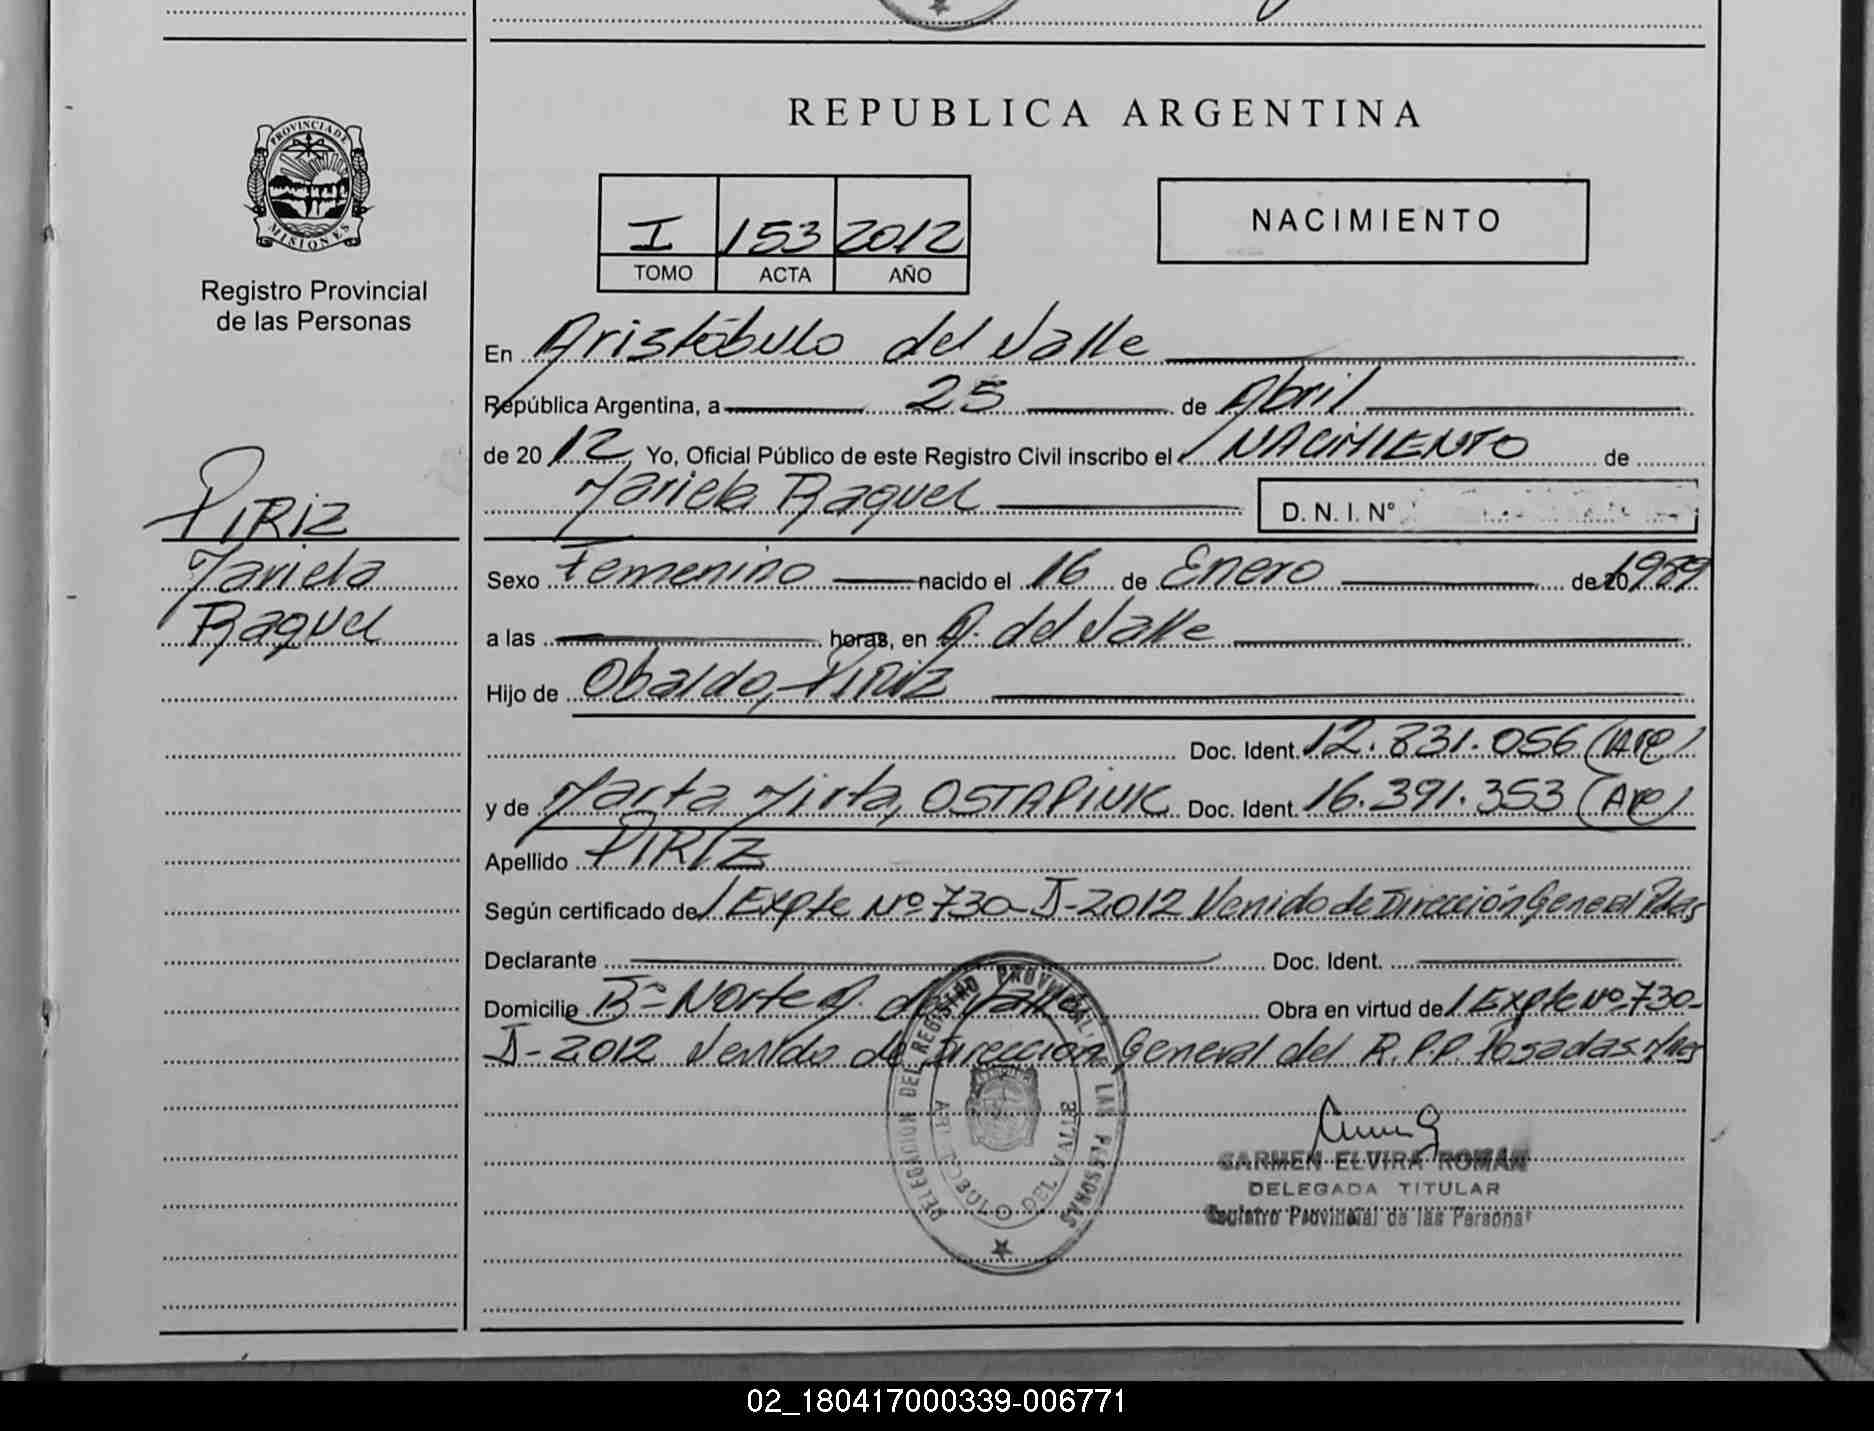 REPUBLICA ARGENTINA
PROVINCIA DE
MISIONES
Registro Provincial
de las Personas
I 153 2012
TOMO ACTA AÑO
NACIMIENTO
En Aristóbulo del Valle
República Argentina, a 25 de Abril
de 2012 Yo, Oficial Público de este Registro Civil inscribo el NACIMIENTO de
Mariela Raquel D. N. I. N°
PIRIZ
Mariela
Raquel
Sexo Femenino nacido el 16 de Enero de 20 1989
a las horas, en A. del Valle
Hijo de Obaldo, PIRIZ
Doc. Ident. 12.831.056 (Arg)
y de Marta Mirta, OSTAPIUK Doc. Ident. 16.391.353 (Arg)
Apellido PIRIZ
Según certificado de Expte Nº 730-I-2012 Venido de Dirección General Pdas
Declarante Doc. Ident.
Domicilio Bº Norte A. del Valle Obra en virtud de Expte Nº 730-
I-2012 Venido de Dirección General del R.P.P. Posadas Mnes
DELEGACION DEL REGISTRO PROVINCIAL DE LAS PERSONAS
ARISTOBULO DEL VALLE
CARMEN ELVIRA ROMAN
DELEGADA TITULAR
Registro Provincial de las Personas
02_180417000339-006771